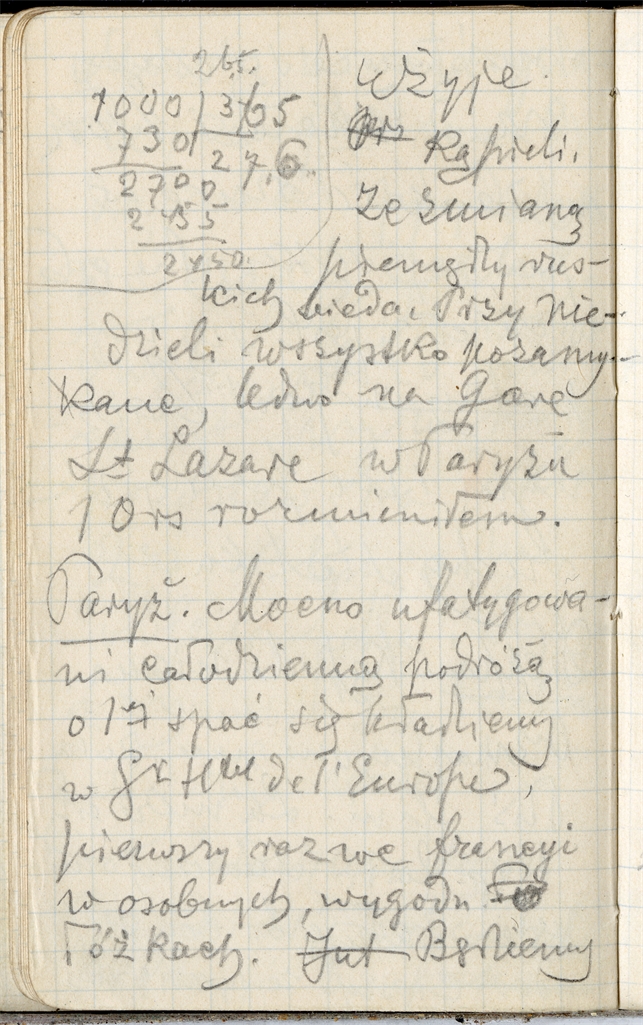 265.
1000 | 365
730 | 27.6.
2700
2455
2450.
użyje
kąpieli.
Ze zmianą
pieniędzy rus-
kich bieda. Przy nie-
dzieli wszystko pozamy-
kane, ledwo na Garé
St Lazare w Paryżu
10 rs rozmieniłem.
Paryż. Mocno ufatygowa-
ni całodzienną podróżą
o 1 spać się kładziemy
w Gr Htel de l'Europe,
pierwszy raz we francyi
w osobnych, wygodn
łóżkach. Jut Będziemy